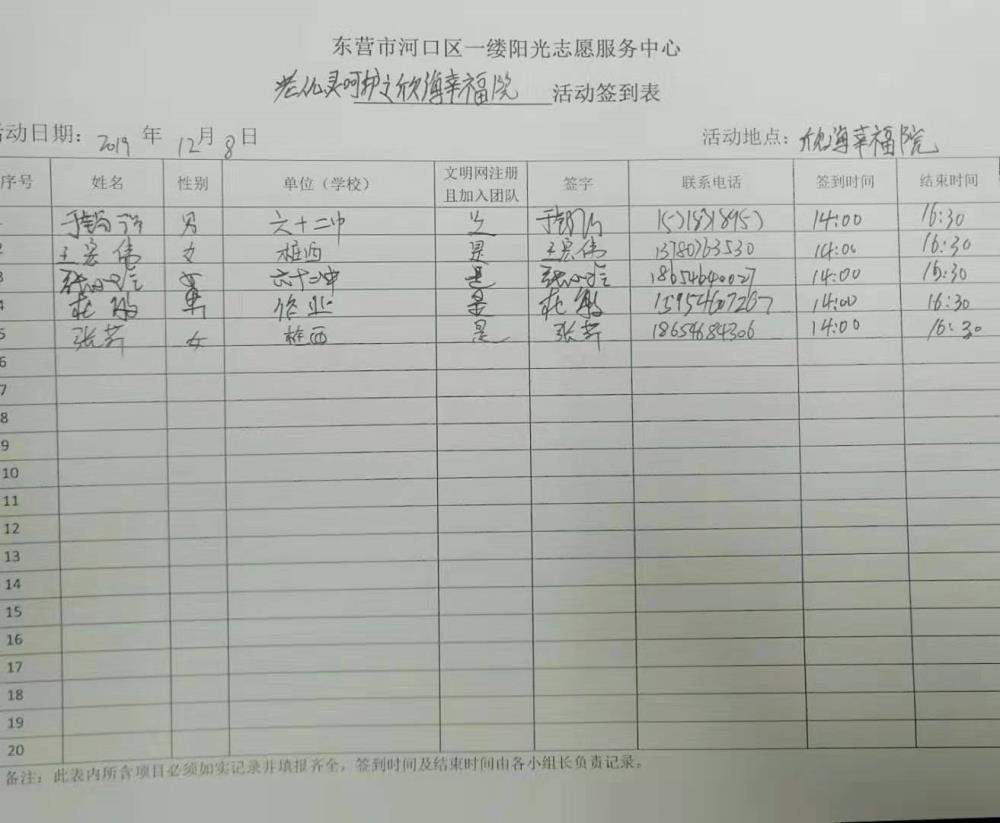 东营市河口区一缕阳光志愿服务中心
老 呵护之欣海幸福院 活动签到表
活动日期：2019 年 12月 8日 活动地点：欣海幸福院
序号 姓名 性别 单位（学校） 文明网注册且加入团队 签字 联系电话 签到时间 结束时间
1 男 六十二中 是 14:00 16:30
2 王宏伟 女 桩西 是 王宏伟 13780763530 14:00 16:30
3 张 女 六十二中 是 张 18654640027 14:00 16:30
4 男 作业 是 15954607267 14:00 16:30
5 张芹 女 桩西 是 张芹 18654684306 14:00 16:30
6
7
8
9
10
11
12
13
14
15
16
17
18
19
20
备注：此表内所含项目必须如实记录并填报齐全，签到时间及结束时间由各小组长负责记录。